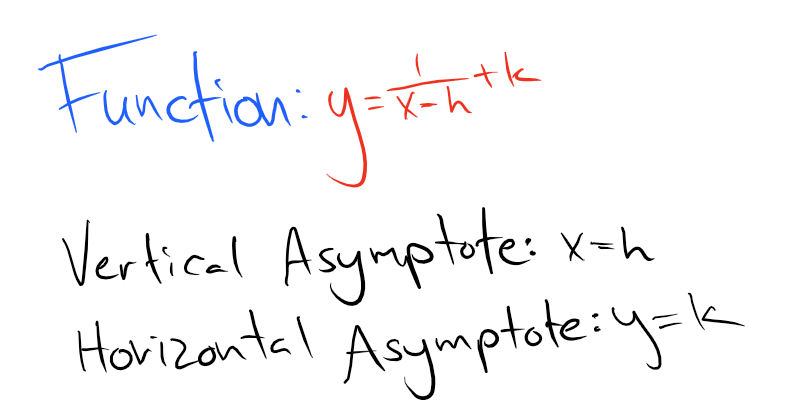 Function: y = 1/(x-h) + k
Vertical Asymptote: x=h
Horizontal Asymptote: y=k